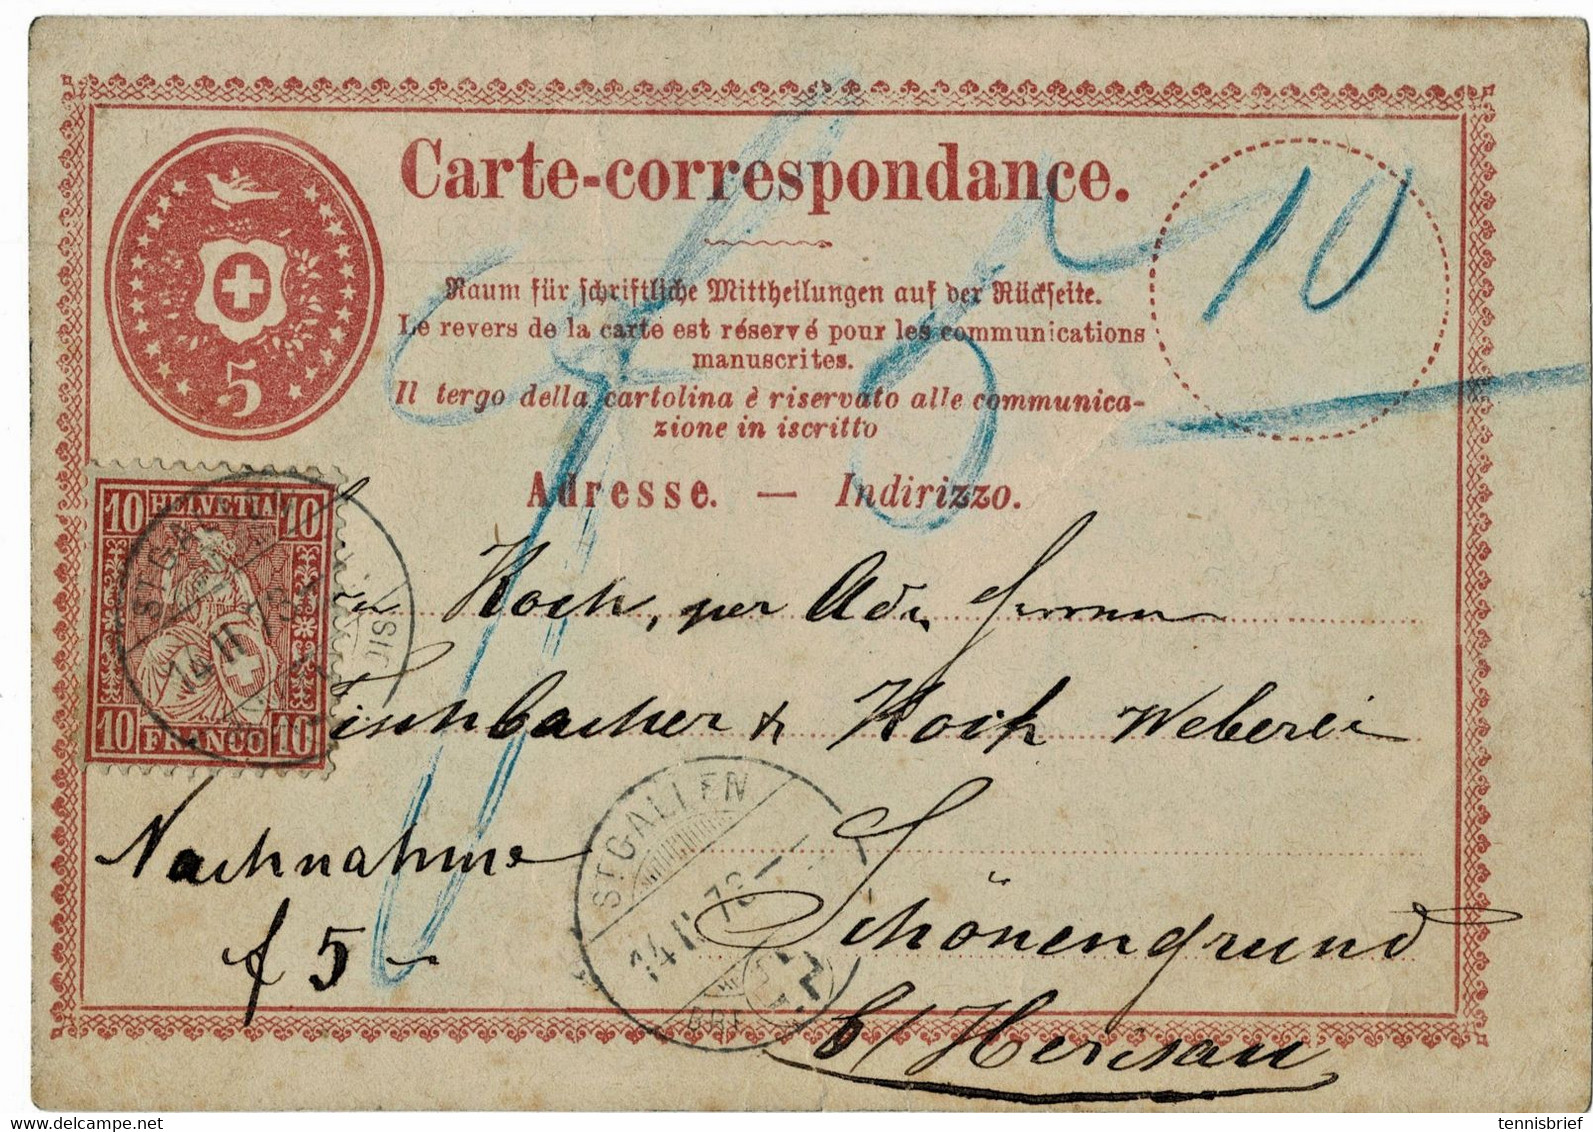 Carte-correspondance.
10
5
Raum für schriftliche Mittheilungen auf der Rückseite.
Le revers de la carte est réservé pour les communications
manuscrites.
Il tergo della cartolina è riservato alle communica-
zione in iscritto
5
Adresse. — Indirizzo.
10 HELVETIA 10
ST. GALLEN
14 II 73
10 FRANCO 10
Koch, per Adr. Herren
Fischbacher & Koch Weberei
Nachnahme
f 5
ST. GALLEN
14 II 73
Schönengrund
b/ Herisau
tennisbrief